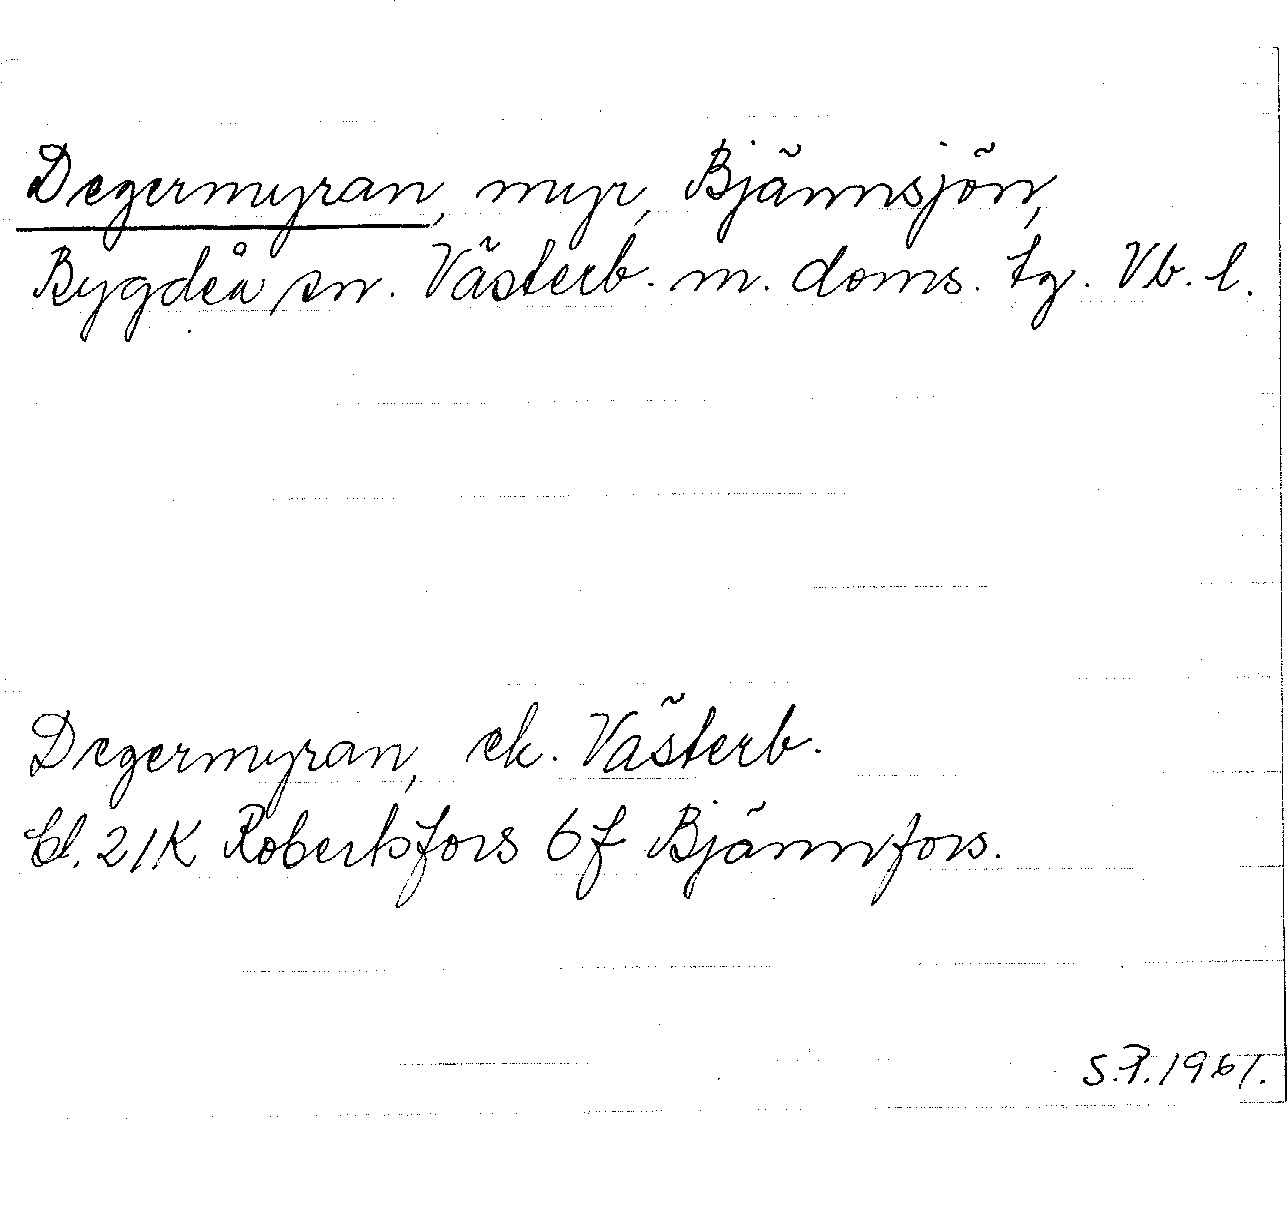 Degermyran, myr, Bjännsjön,
Bygdeå sn. Västerb. m. doms. tg. Vb. l.
Degermyran, ek. Västerb.
bl. 21K Robertsfors 6f Bjännfors.
S.P. 1961.